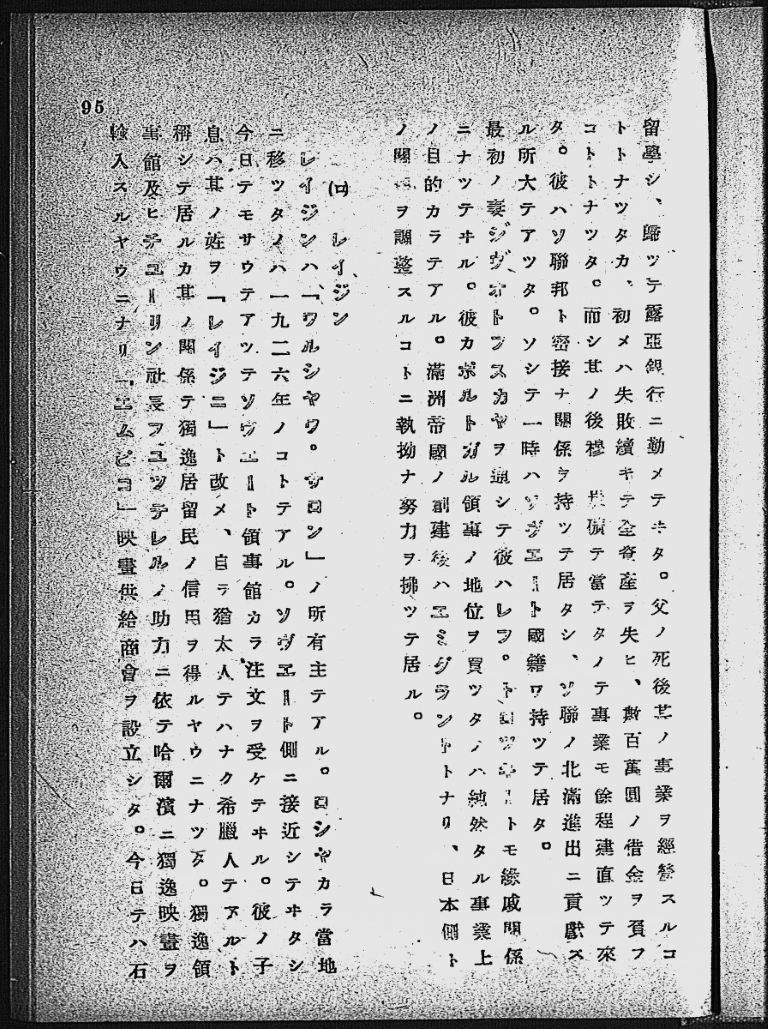 留學シ、歸ツテ露亞銀行ニ勤メテヰタ。父ノ死後其ノ事業ヲ經營スルコ
トトナツタカ、初メハ失敗續キテ全資産ヲ失ヒ、數百萬圓ノ借金ヲ負フ
コトトナツタ。而シ其ノ後穆 炭礦テ當テタノテ事業モ餘程建直ツテ來
タ。彼ハソ聯邦ト密接ナ關係ヲ持ツテ居タシ、ソ聯ノ北滿進出ニ貢獻ス
ル所大テアツタ。ソシテ一時ハソヴエート國籍ワ持ツテ居タ。
最初ノ妻ジヴオトフスカヤヲ通シテ彼ハレフ。トロツキートモ緣戚關係
ニナツテヰル。彼カポルトガル領事ノ地位ヲ買ツタノハ純然タル事業上
ノ目的カラテアル。滿洲帝國ノ創建後ハエミグラントトナリ、日本側ト
ノ關 ヲ調整スルコトニ執拗ナ努力ヲ拂ツテ居ル。
(ロ) レイジン
レイジンハ「ワルシヤワ。サロン」ノ所有主テアル。ロシヤカラ當地
ニ移ツタノハ一九二六年ノコトテアル。ソヴエート側ニ接近シテヰタシ
今日テモサウテアツテソヴエート領事館カラ注文ヲ受ケテヰル。彼ノ子
息ハ其ノ姓ヲ「レイジニ」ト改メ、自ラ猶太人テハナク希臘人テアルト
稱シテ居ルカ其ノ關係テ獨逸居留民ノ信用ヲ得ルヤウニナツタ。獨逸領
事館及ヒチユーリン社長フユツテレルノ助力ニ依テ哈爾濱ニ獨逸映畫ヲ
輸入スルヤウニナリ「エムピコ」映畫供給商會ヲ設立シタ。今日テハ石
95